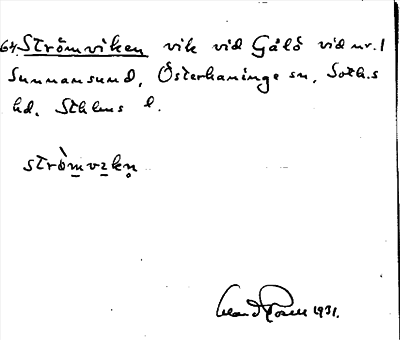 64. Strömviken vik vid Gålö vid nr. 1
Sunnansund, Österhaninge sn, Soth.s
hd. Sthlms l.
strömvikn
1931.